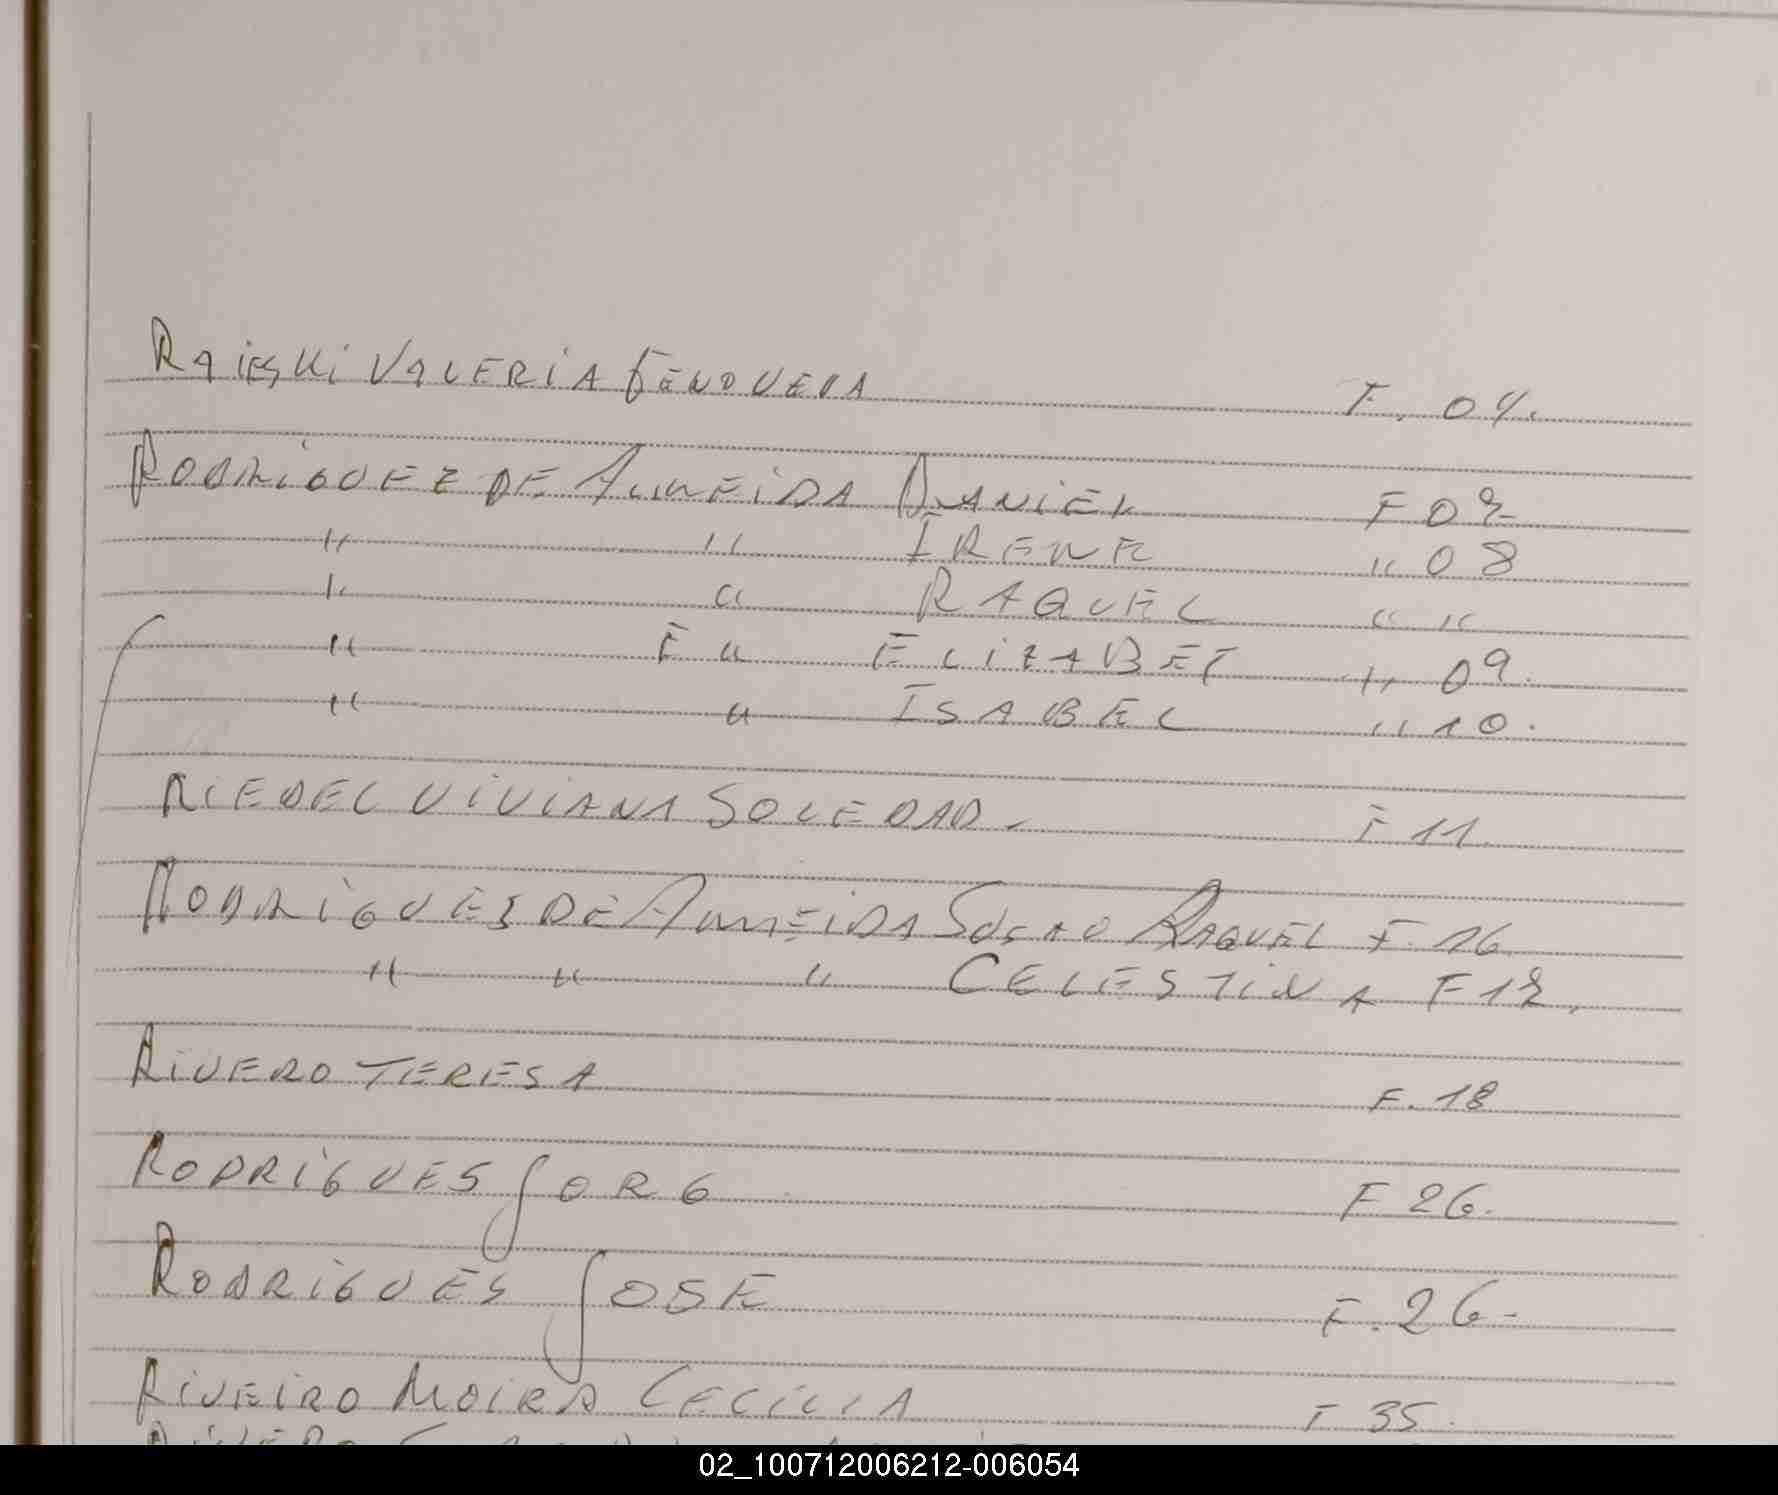 RAIESKI VALERIA GENOVEVA F. 04.
RODRIGUEZ DE ALMEIDA DANIEL F 07
" " IRENE " 08
" " RAQUEL " "
" E " ELIZABET " 09.
" " ISABEL " 10.
RIEDEL VIVIANA SOLEDAD. F 11.
RODRIGUES DE ALMEIDA RAQUEL F. 16
" " " CELESTINA F 17.
RIVERO TERESA F. 18
RODRIGUES JORG F 26.
RODRIGUES JOSE F. 26.
RIVEIRO MOIRA CECILIA F 35.
02_100712006212-006054